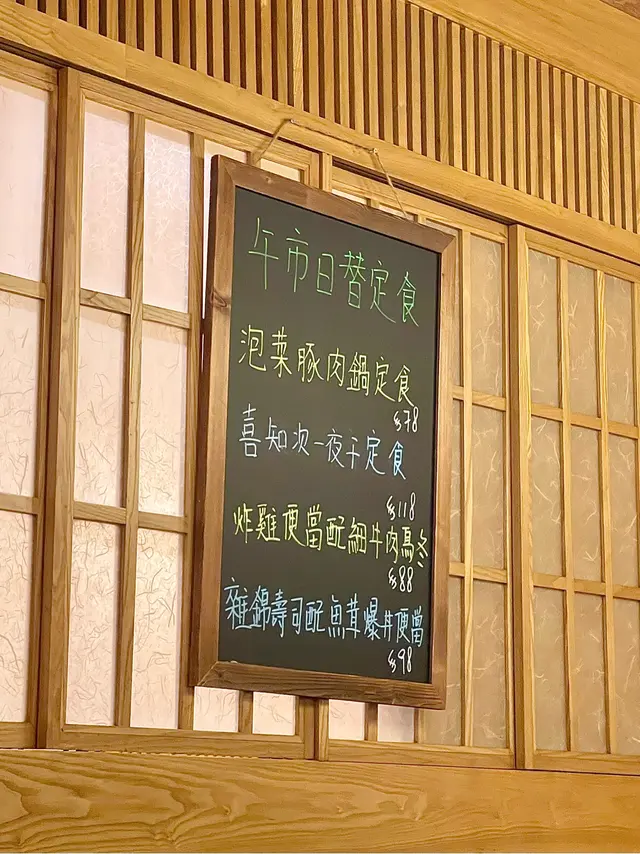 午市日替定食
泡菜豚肉鍋定食
$78
喜知次一夜干定食
$118
炸雞便當配細牛肉烏冬
$88
雜錦壽司配魚茸爆丼便當
$98